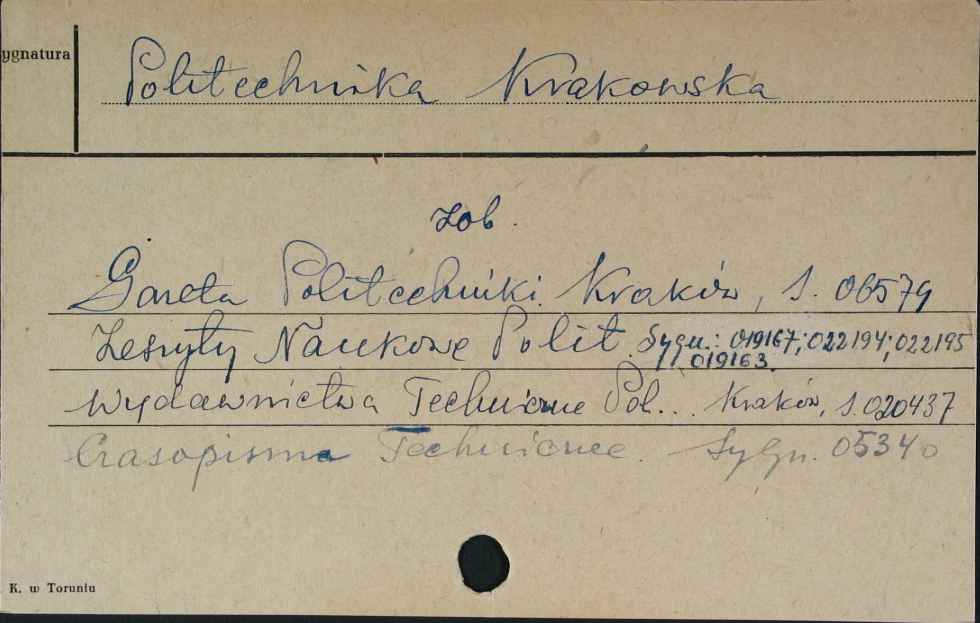 ygnatura
Politechnika Krakowska
zob.
Gazeta Politechniki. Kraków, S. 06579
Zeszyty Naukowe Polit. Sygn.: 019167; 022194; 022195
019163.
Wydawnictwa Techniczne Pol... Kraków, S. 020437
Czasopisma Techniczne. Sygn. 05340
K. w Toruniu